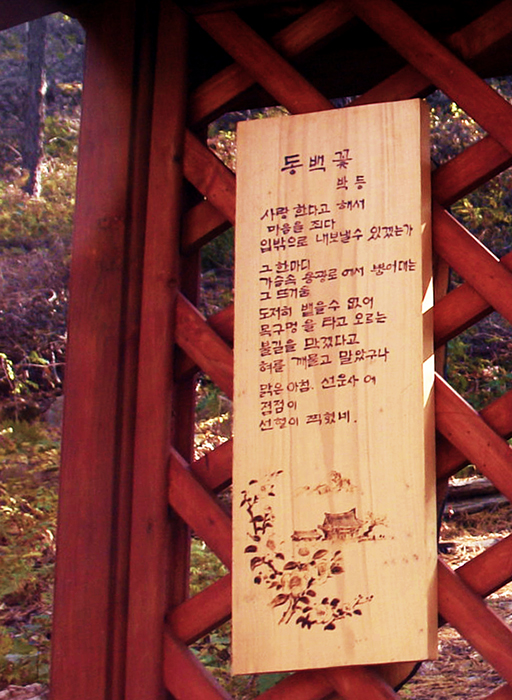 동백꽃
박 등
사랑 한다고 해서
마음을 죄다
입밖으로 내보낼수 있겠는가
그 한마디
가슴속 용광로 에서 뿜어대는
그 뜨거움
도저히 뱉을수 없어
목구멍 을 타고 오르는
불길을 막겠다고
혀를 깨물고 말았구나
맑은 아침. 선운사 에
점점이
선혈이 찍혔네.